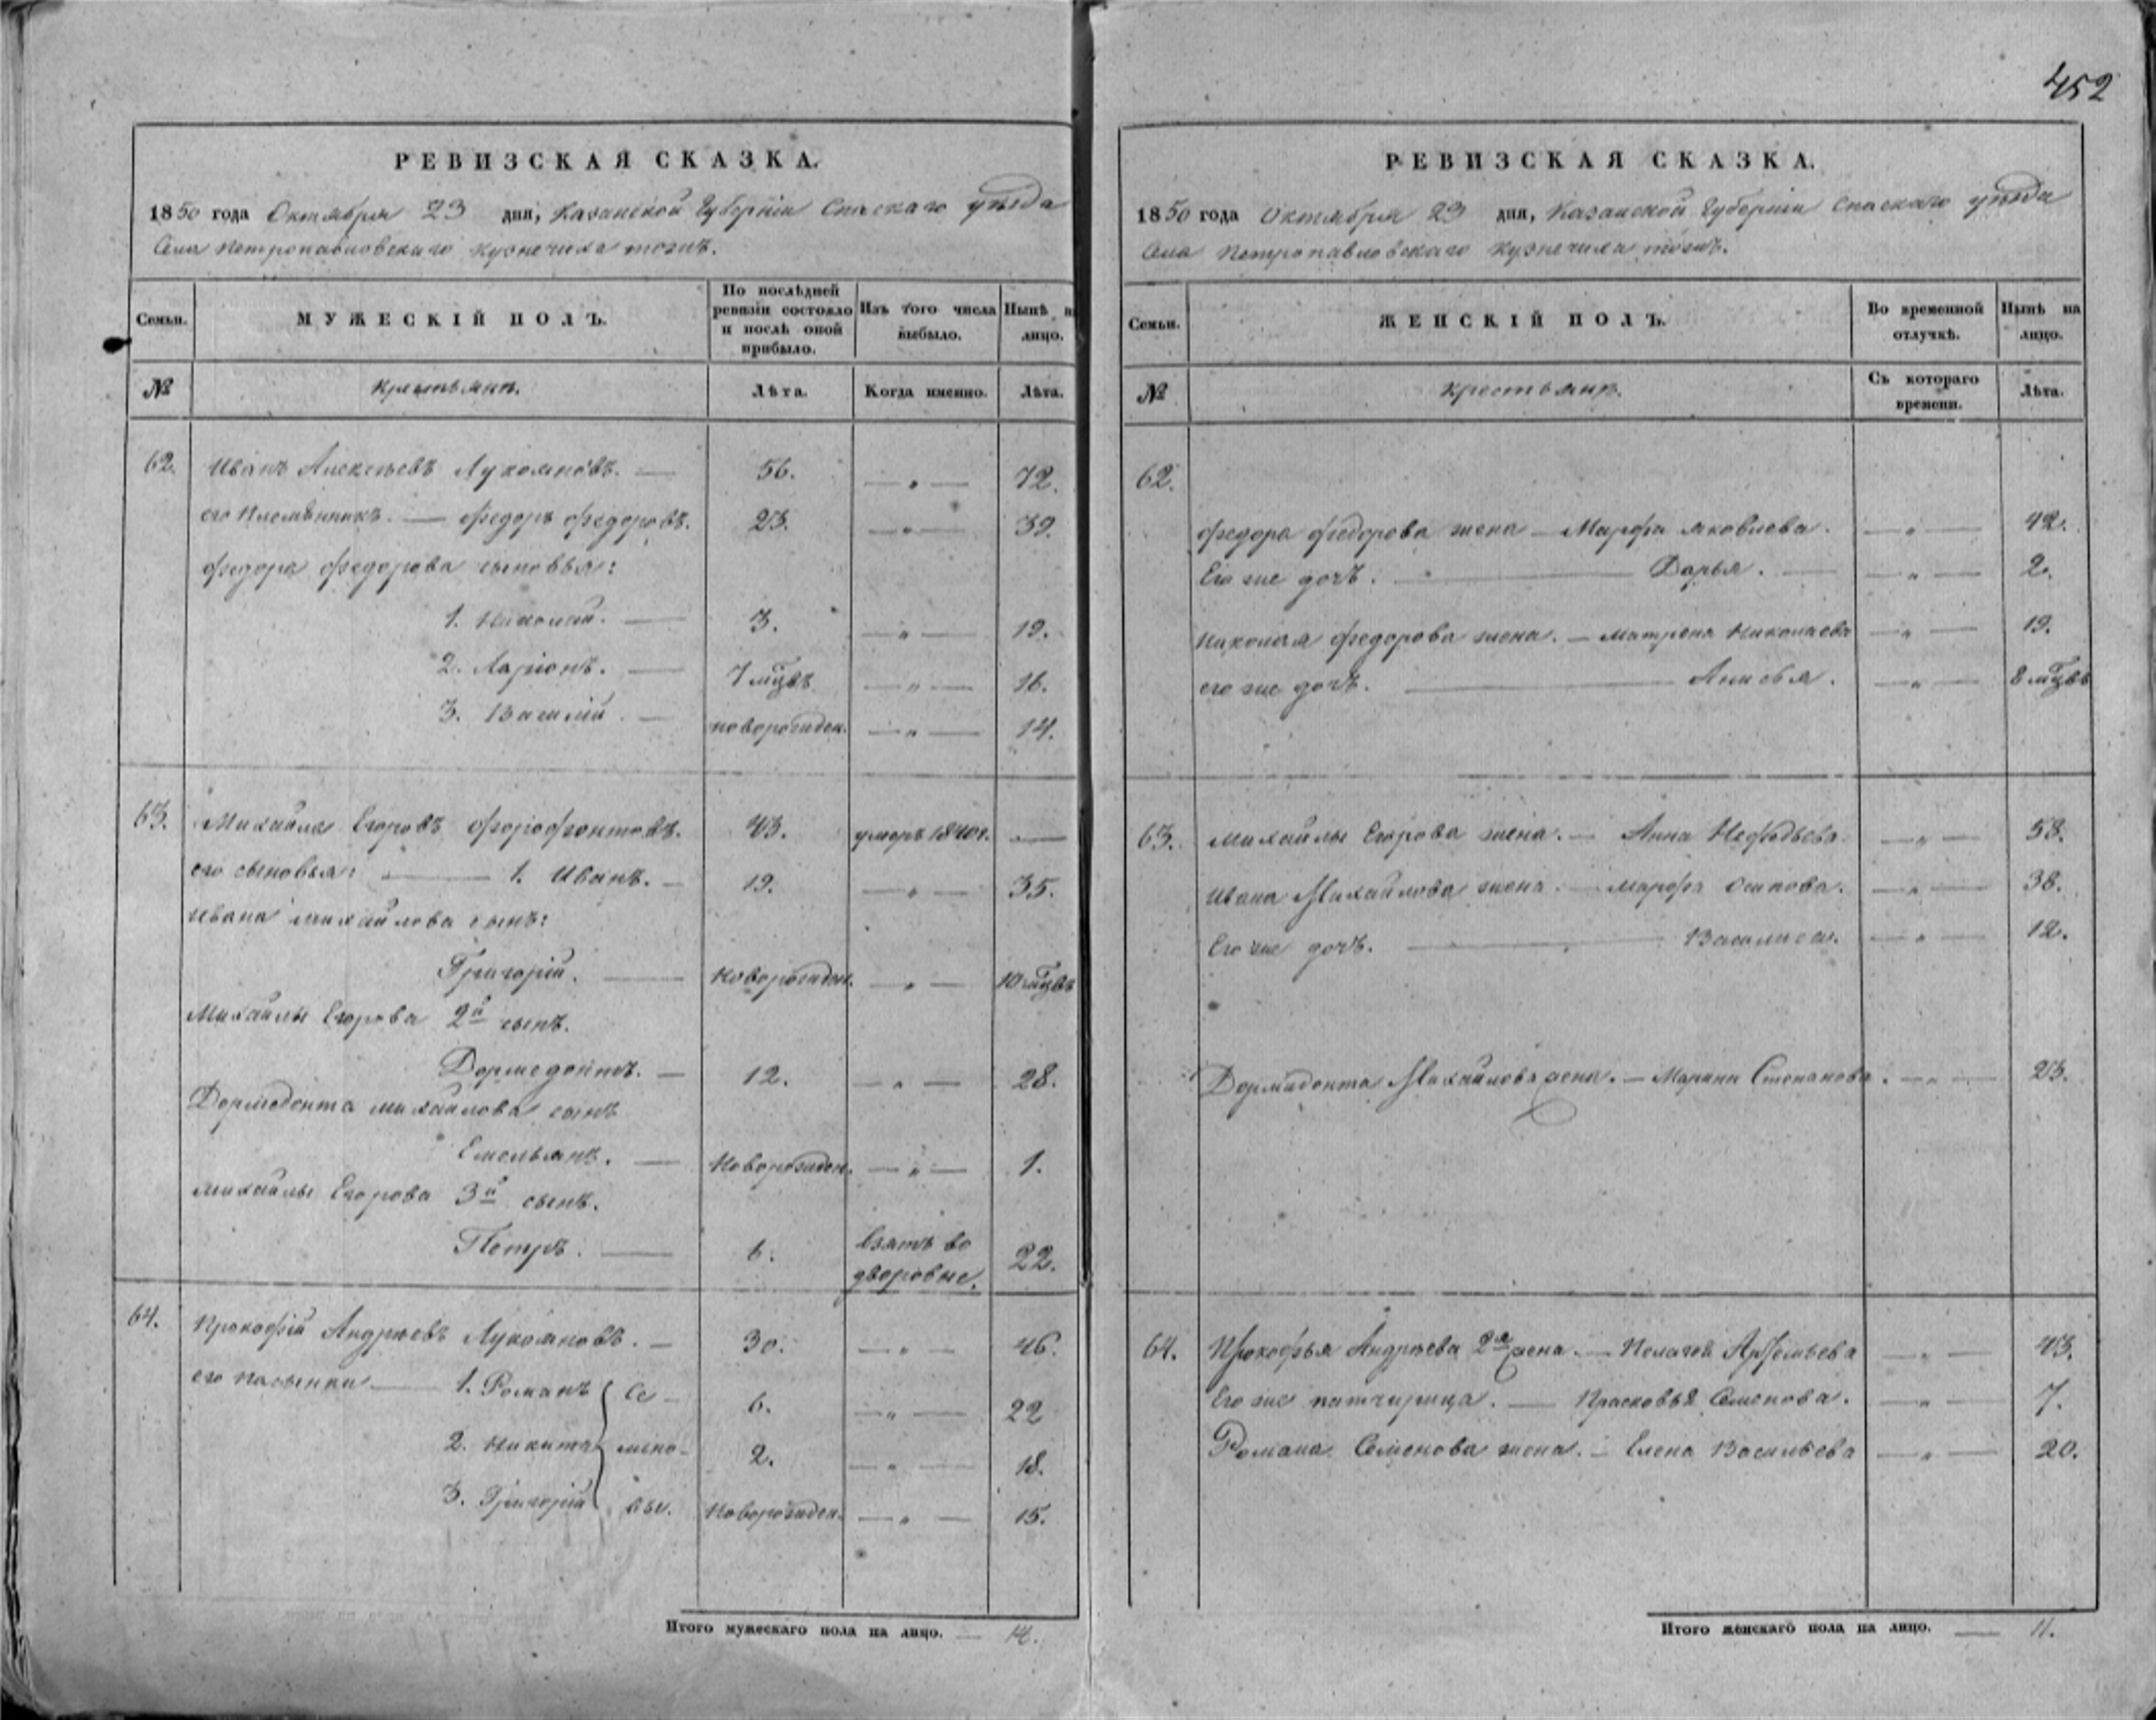 452
РЕВИЗСКАЯ СКАЗКА.
1850 года Октября 23 дня, Казанской Губерніи Спаскаго уѣзда
Села Петропавловскаго Кузнечиха тожъ.
Семьи.
МУЖЕСКІЙ ПОЛЪ.
По послѣдней ревизіи состояло и послѣ оной прибыло.
Изъ того числа выбыло.
Нынѣ на лицо.
№
Крестьянъ.
Лѣта.
Когда именно.
Лѣта.
62. Иванъ Алексѣевъ Лукомновъ. — 56. — „ — 72.
его Племянникъ. — Федоръ Федоровъ. 23. — „ — 39.
Федора Федорова сыновья:
1. Николай. — 3. — „ — 19.
2. Ларіонъ. — 7 мцвъ — „ — 16.
3. Василій. — новорожден. — „ — 14.
63. Михайла Егоровъ 43. умеръ 1840 г. —
его сыновья: — 1. Иванъ. — 19. — „ — 35.
Ивана Михайлова сынъ:
Григорій. — Новорожден. — „ — 10 мцвъ
Михайлы Егорова 2й сынъ.
Дормедонтъ. — 12. — „ — 28.
Дормедонта Михайлова сынъ
Емельянъ. — Новорожден. — „ — 1.
Михайлы Егорова 3й сынъ.
Петръ. — 6. взятъ во дворовые. 22.
64. Прокофій Андреевъ Лукомновъ. — 30. — „ — 46.
его пасынки — 1. Романъ Се- 6. — „ — 22
2. Никита мено- 2. — „ — 18.
3. Григорій вы. Новорожден. — „ — 15.
Итого мужескаго пола на лицо. — 14.
РЕВИЗСКАЯ СКАЗКА.
1850 года Октября 23 дня, Казанской Губерніи Спаскаго уѣзда
Села Петропавловскаго Кузнечиха тожъ.
Семьи.
ЖЕНСКІЙ ПОЛЪ.
Во временной отлучкѣ.
Нынѣ на лицо.
№
Крестьянъ.
Съ котораго времени.
Лѣта.
62.
Федора Федорова жена — Марфа Яковлева. — „ — 42.
Его же дочь. — Дарья. — — „ — 2.
Николая Федорова жена. — Матрена Николаева — „ — 19.
его же дочь. — Анисья. — „ — 8 мцвъ
63. Михайлы Егорова жена. — Анна Нефедьева. — „ — 58.
Ивана Михайлова жена. — Марфа Осипова. — „ — 38.
Его же дочь. — Василиса. — „ — 12.
Дормидонта Михайлова жена. — Марина Степанова. — „ — 23.
64. Прокофья Андреева 2я жена. — Пелагея Артемьева — „ — 43.
Его же патчирица. — Прасковья Семенова. — „ — 7.
Романа Семенова жена. — Елена Васильева — „ — 20.
Итого женскаго пола на лицо. — 11.